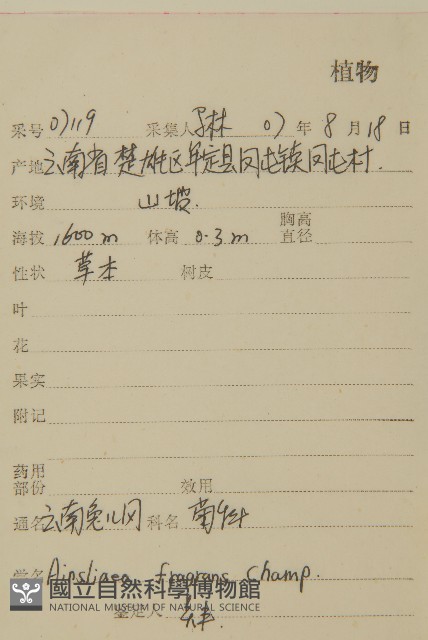 植物
采号 07119 采集人 林 07 年 8 月 18 日
产地 云南省楚雄区牟定县凤屯镇凤屯村.
环境 山坡.
海拔 1600 m 体高 0.3 m 胸高直径
性状 草本 树皮
叶
花
果实
附记
药用部份 效用
通名 云南兔儿风 科名 菊科
学名 Ainsliaea fragrans Champ.
國立自然科學博物館
NATIONAL MUSEUM OF NATURAL SCIENCE
鉴定人